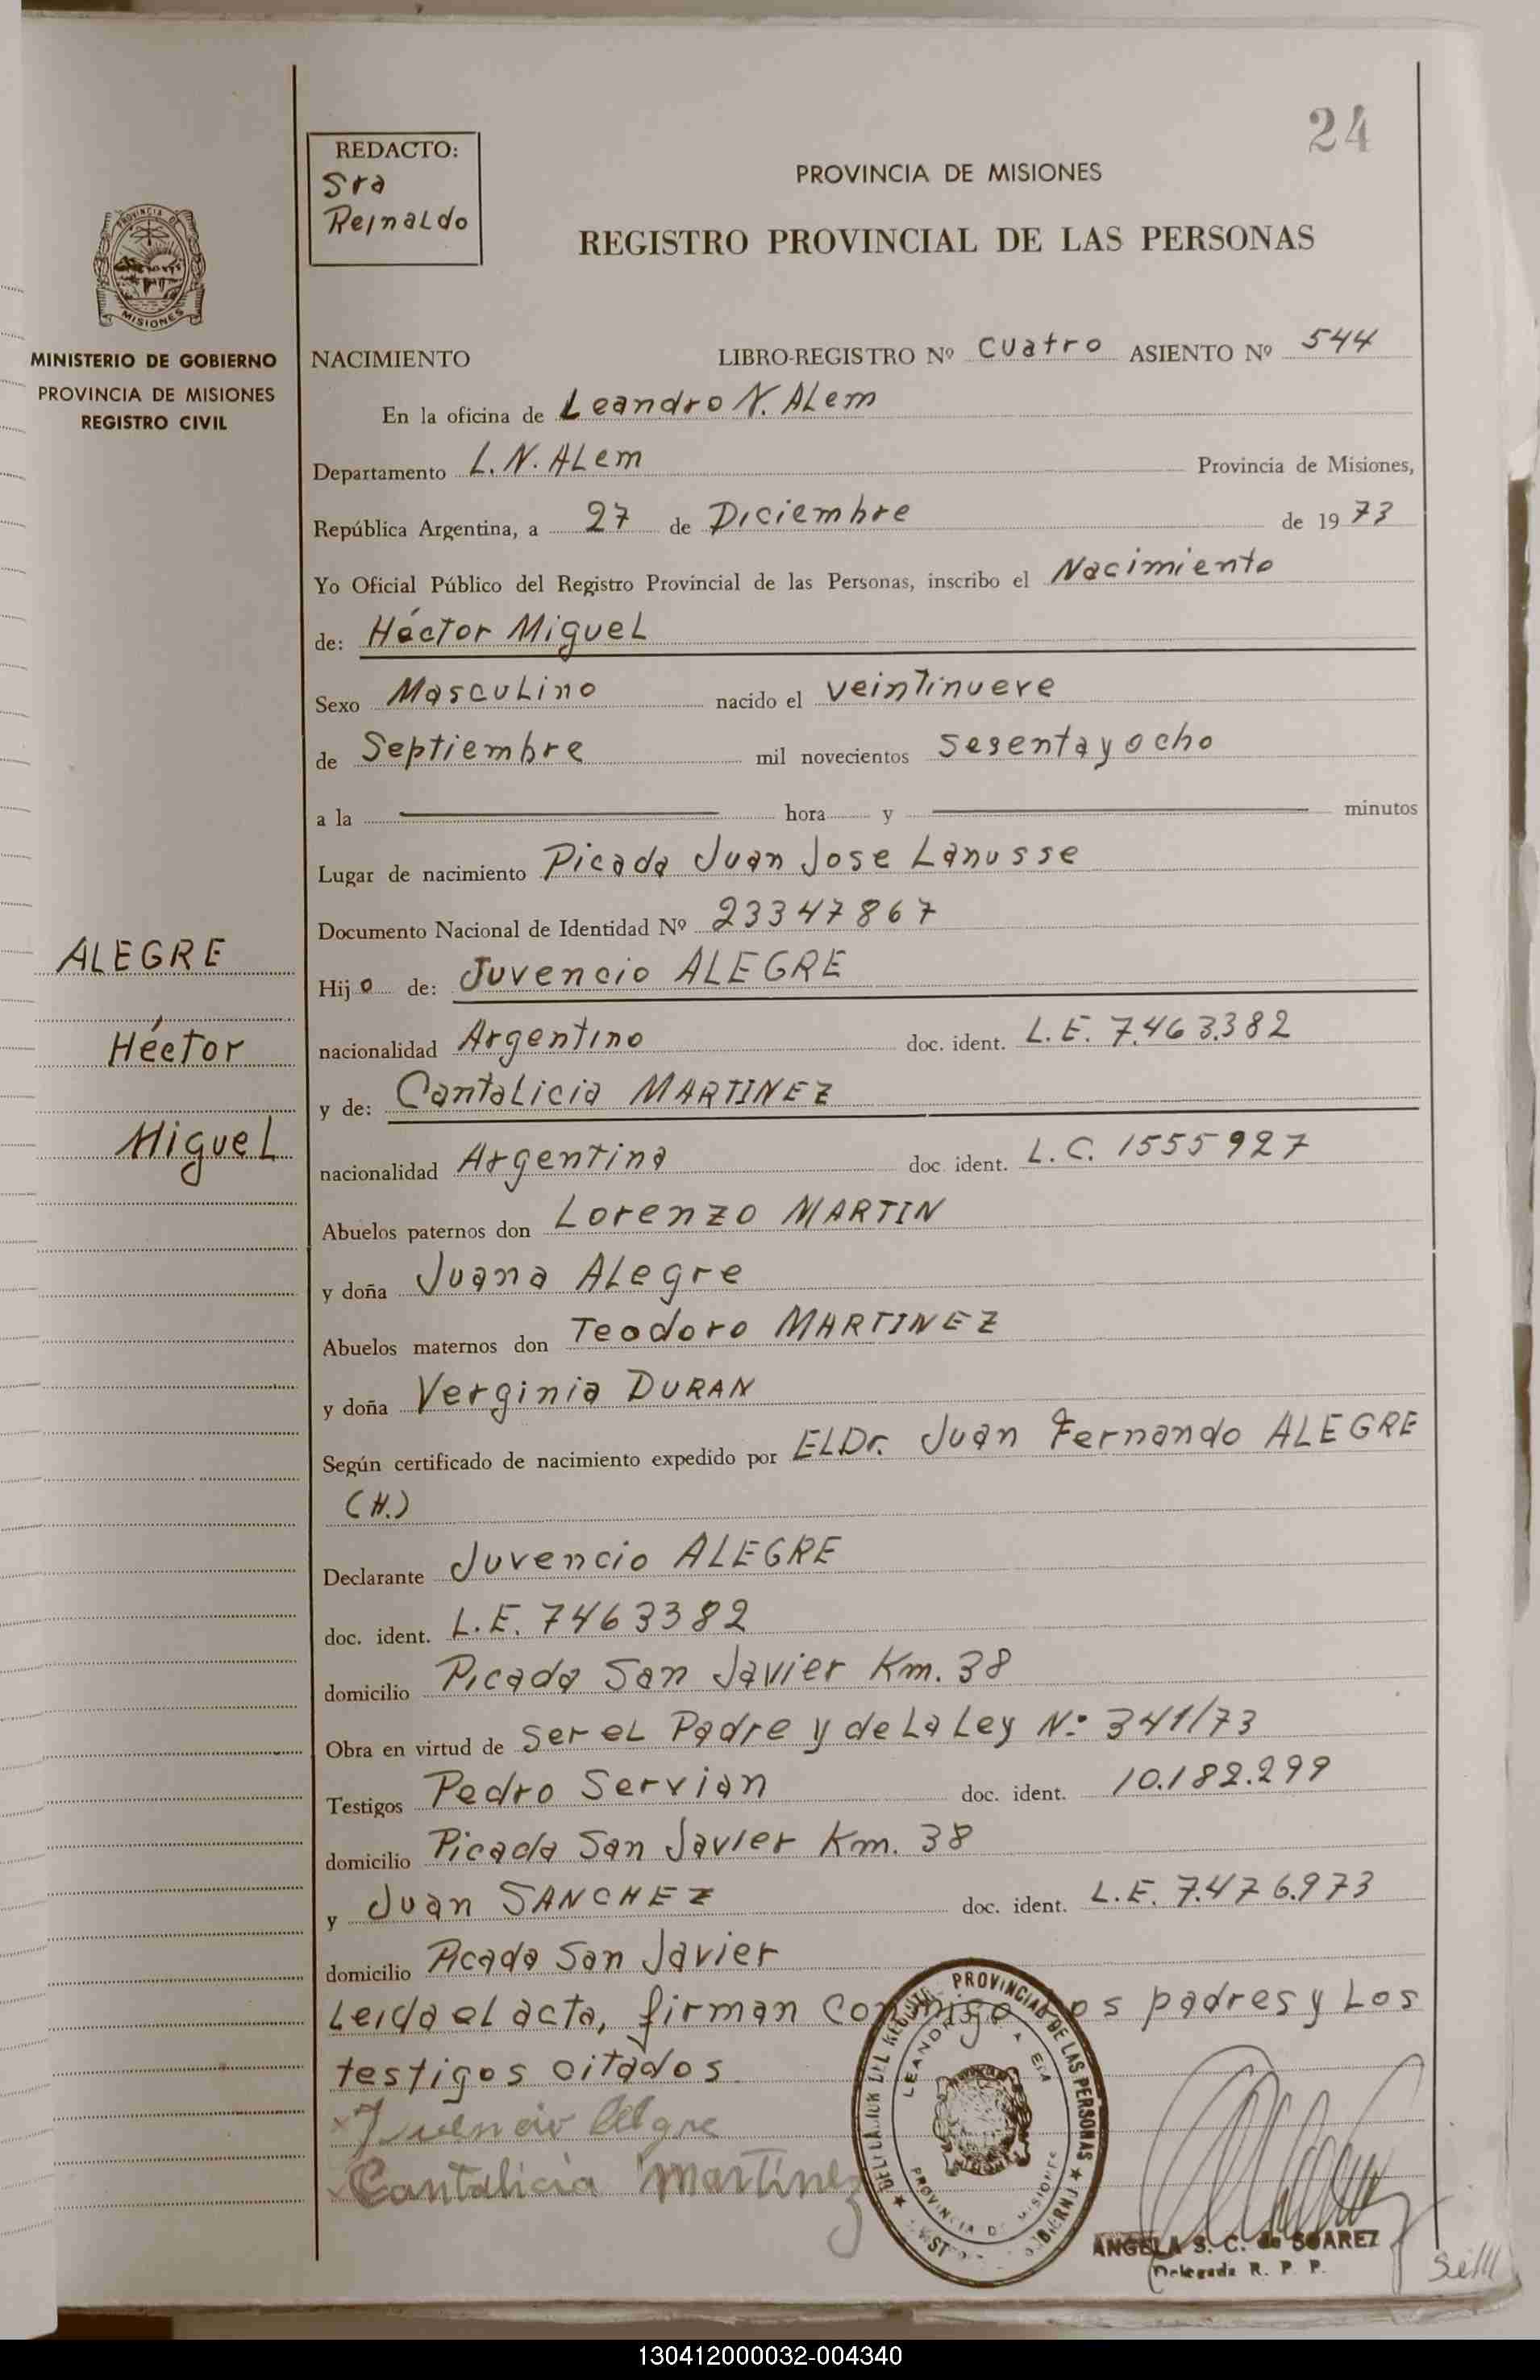 24
REDACTO:
Sra
Reinaldo
PROVINCIA DE MISIONES
REGISTRO PROVINCIAL DE LAS PERSONAS
PROVINCIA DE
MISIONES
MINISTERIO DE GOBIERNO
PROVINCIA DE MISIONES
REGISTRO CIVIL
NACIMIENTO LIBRO-REGISTRO Nº Cuatro ASIENTO Nº 544
En la oficina de Leandro N. ALem
Departamento L. N. ALem Provincia de Misiones,
República Argentina, a 27 de Diciembre de 1973
Yo Oficial Público del Registro Provincial de las Personas, inscribo el Nacimiento
de: Héctor MigueL
Sexo MascuLino nacido el veintinueve
de Septiembre mil novecientos sesenta y ocho
a la hora y minutos
Lugar de nacimiento Picada Juan Jose Lanusse
Documento Nacional de Identidad Nº 23347867
ALEGRE
Héctor
MigueL
Hijo de: Juvencio ALEGRE
nacionalidad Argentino doc. ident. L.E. 7.463.382
y de: CantaLicia MARTINEZ
nacionalidad Argentina doc. ident. L.C. 1555927
Abuelos paternos don Lorenzo MARTIN
y doña Juana ALegre
Abuelos maternos don Teodoro MARTINEZ
y doña Verginia DURAN
Según certificado de nacimiento expedido por EL Dr. Juan Fernando ALEGRE
(H.)
Declarante Juvencio ALEGRE
doc. ident. L.E. 7463382
domicilio Picada San Javier Km. 38
Obra en virtud de ser eL Padre y de La Ley N.º 341/73
Testigos Pedro Servian doc. ident. 10.182.299
domicilio Picada San Javier Km. 38
y Juan SANCHEZ doc. ident. L.E. 7.476.973
domicilio Picada San Javier
Leida eL acta, firman conmigo Los padres y Los
testigos citados
x Juvencio Alegre
x Cantalicia Martinez
PROVINCIAL DE LAS PERSONAS
PROVINCIA DE MISIONES
ANGELA S. C. de SUAREZ
Delegada R. P. P.
130412000032-004340